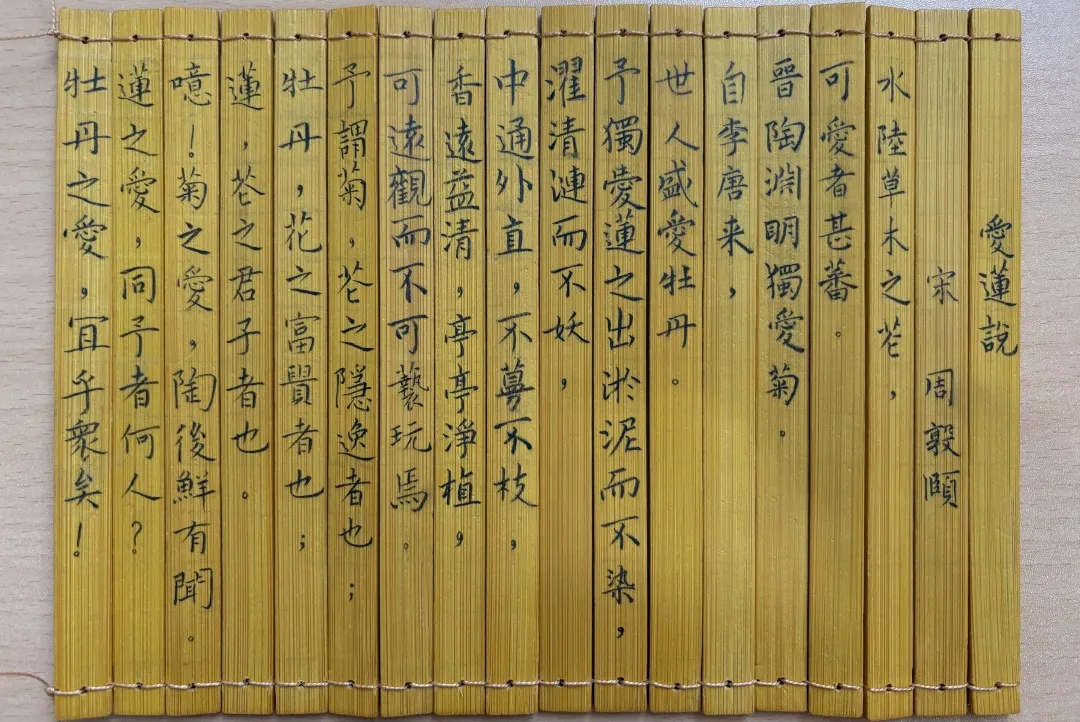 愛蓮說
宋 周敦頤
水陸草木之花，
可愛者甚蕃。
晉陶淵明獨愛菊。
自李唐来，
世人盛愛牡丹。
予獨愛蓮之出淤泥而不染，
濯清漣而不妖，
中通外直，不蔓不枝，
香遠益清，亭亭淨植，
可遠觀而不可褻玩焉。
予謂菊，花之隱逸者也；
牡丹，花之富貴者也；
蓮，花之君子者也。
噫！菊之愛，陶後鮮有聞。
蓮之愛，同予者何人？
牡丹之愛，宜乎衆矣！